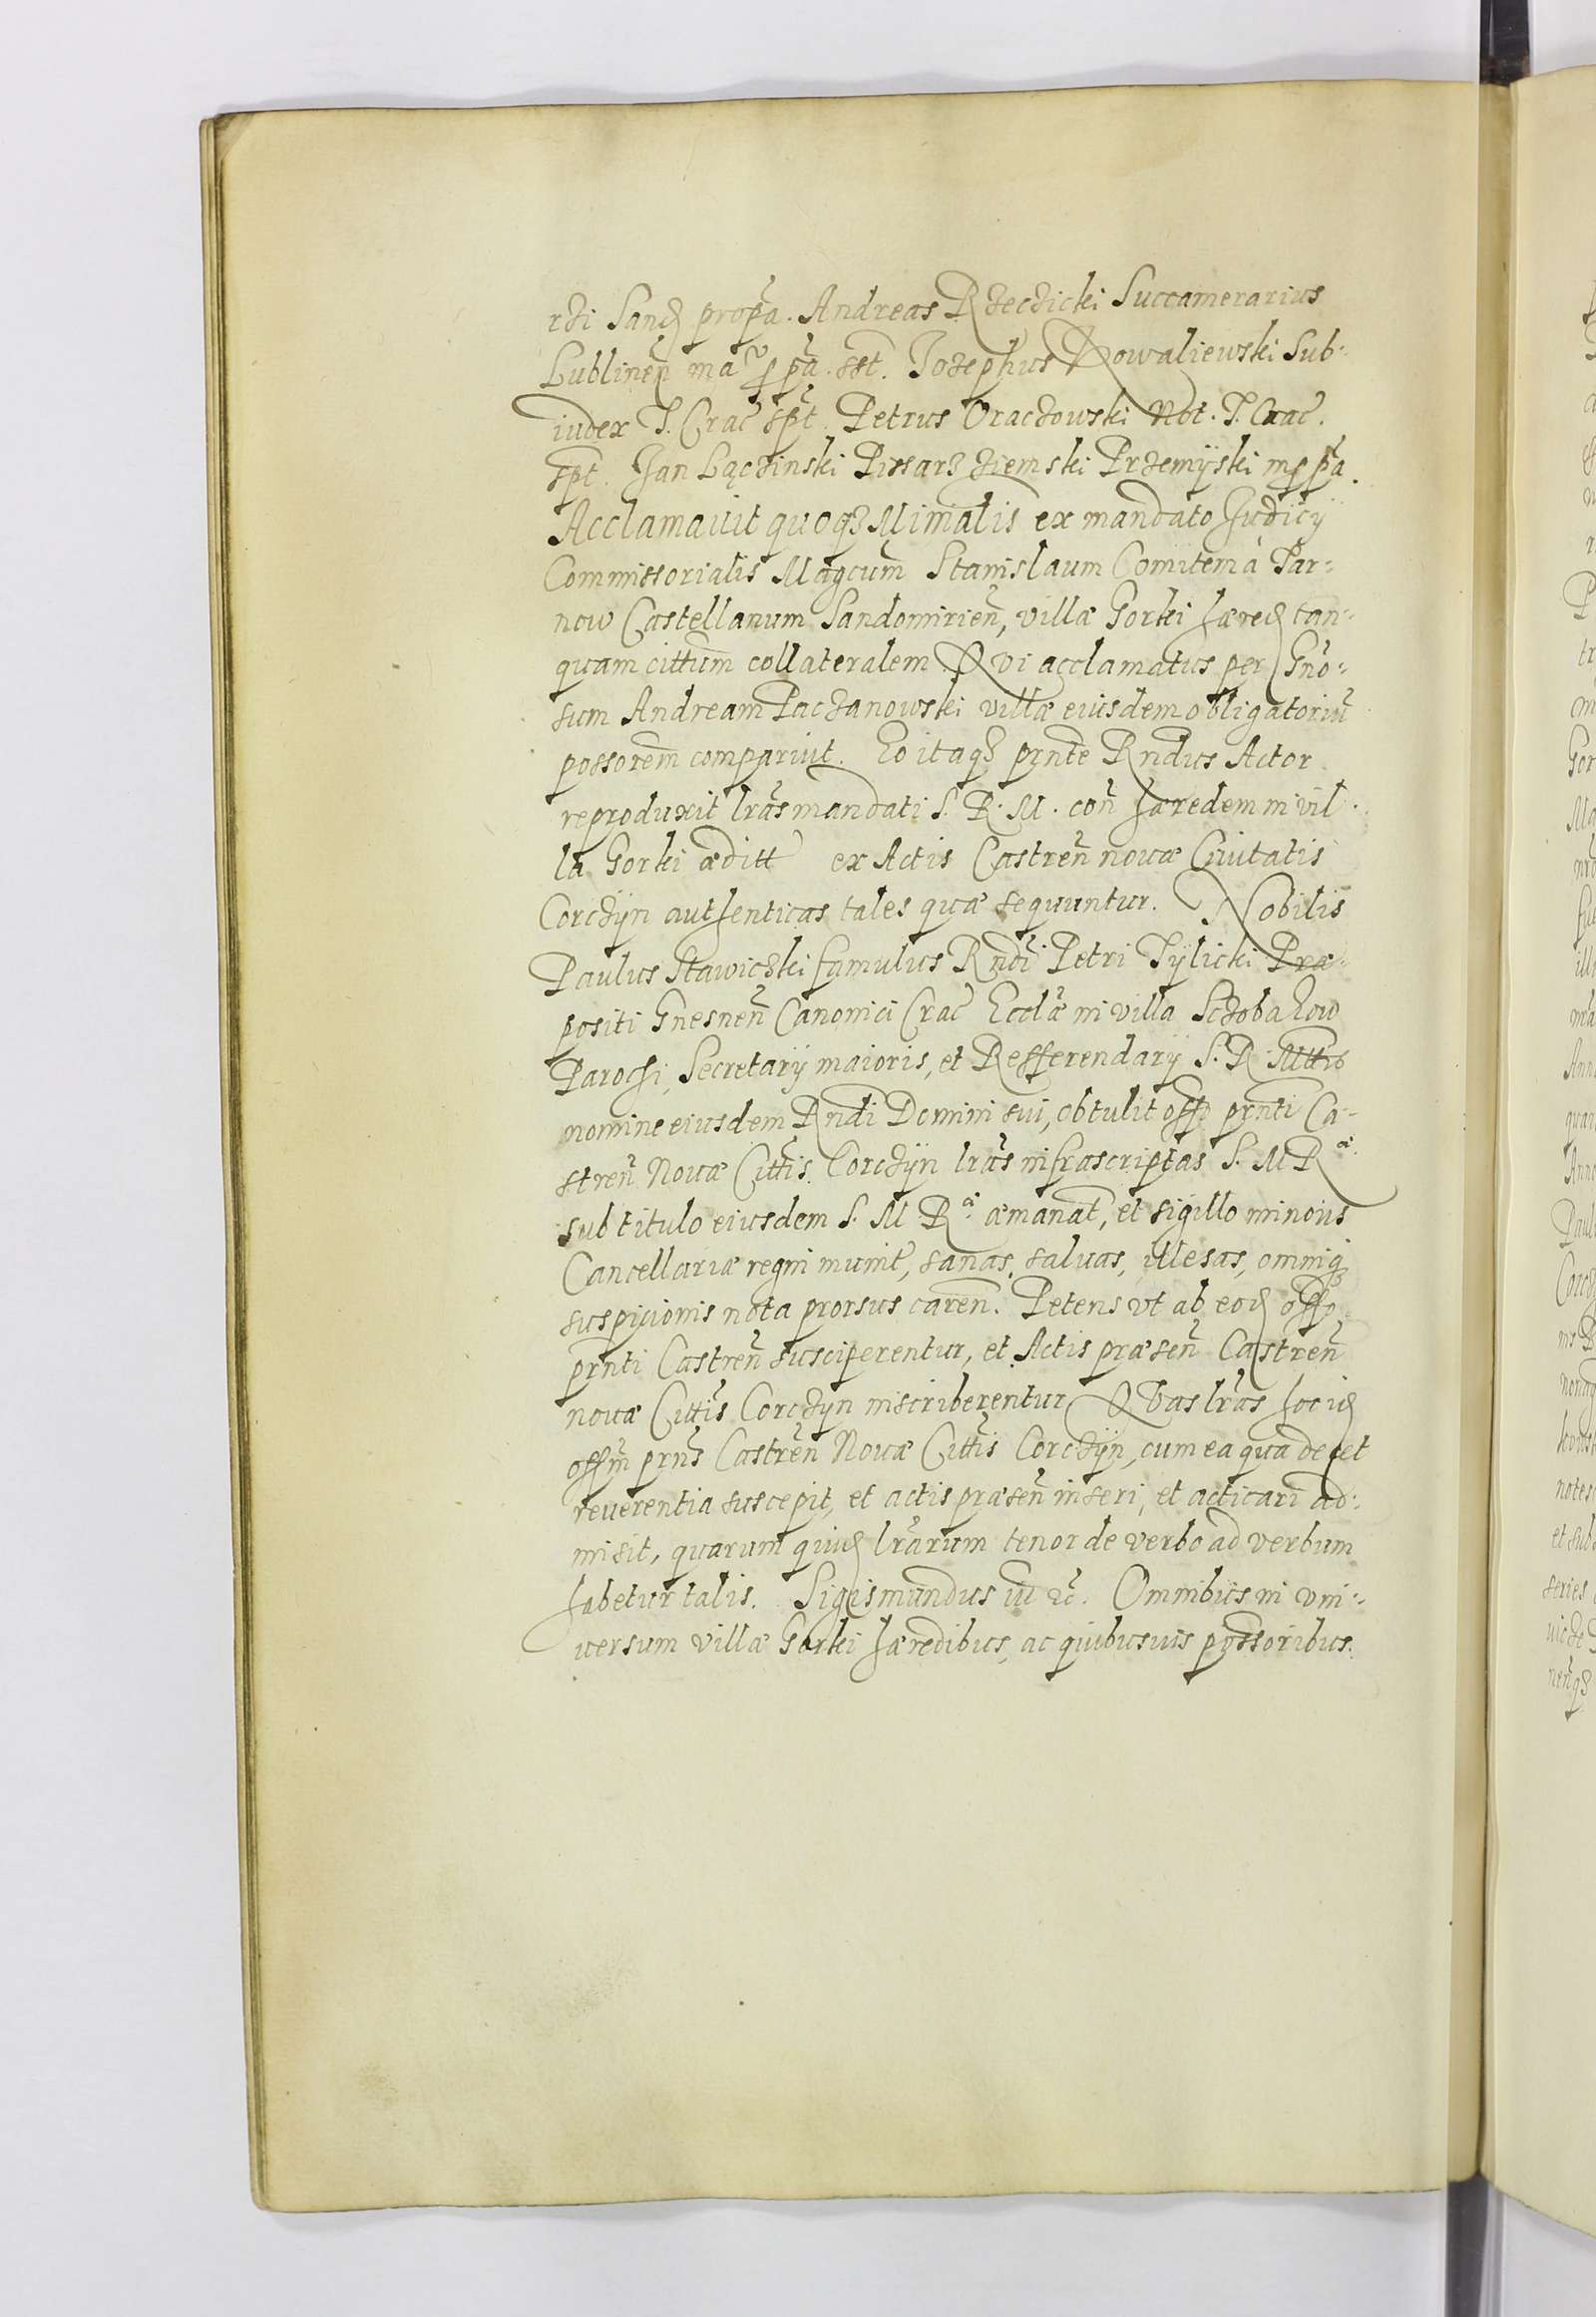 rzi Sand propa. Andreas Rzeczicki Succamerarius
Lublinen̄ ma ppa. sst. Jozephus Kowaliewski Sub-
iudex T. Crac̄ spt. Petrus Oraczowski Not. T. Crac̄.
spt. Jan Łączinski Pissarz ziemski Przemÿski mppa.
Acclamauit quoqȝ Minr̄alis ex mandato Judicij
Commissorialis Magcum Stanislaum Comitem à Tar-
now Castellanum Sandomirien̄, villæ Gorki hæred tan-
quam cittum collateralem Qui acclamatus per Gn̄o-
sum Andream Paczanowski villæ eiusdem obligatoriū
possorem compariut. Eo itaqȝ prnte Rndus Actor
reproduxit lrās mandati S. R. M. con̄ hæredem in vil-
la Gorki æditt ex Actis Castren̄ nouæ Ciuitatis
Corczÿn authenticas tales quæ sequuntur. Nobilis
Paulus Stawiczki famulus Rndi Petri Tÿlicki Præ-
positi Gnesnen̄ Canonici Crac̄ Ecclæ in villa Sczobazow
Parochi, Secretarij maioris, et Refferendarij S. R. Mttis
nomine eiusdem Rndi Domini sui, obtulit offo prnti Ca-
stren̄ Nouæ Cittis Corczÿn lrās infrascriptas S. M R
sub titulo eiusdem S. M R æmanat, et sigillo minoris
Cancellariæ regni munit, sanas, saluas, illesas, omniqȝ
suspicionis nota prorsus caren̄. Petens vt ab eod offo
prnti Castren̄ susciperentur, et Actis præsen̄ Castren̄
nouæ Cittis Corczÿn inscriberentur Quas lrās hoc id
offm prns Castren̄ Nouæ Cittis Corczÿn, cum ea qua decet
reuerentia suscepit, et actis præsen̄ inseri, et acticari ad-
misit, quarum quid lrārum tenor de verbo ad verbum
habetur talis. Sigismundus iii etc. Omnibus in vni-
uersum villæ Gorki hæredibus, ac quibusuis possoribus.